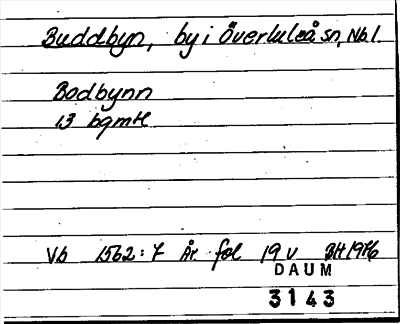 Buddbyn, by i Överluleå sn, Nb l.
Bodbynn
13 bqmtl
Vb 1562:7 År fol 19 v BH 1976
DAUM
3143